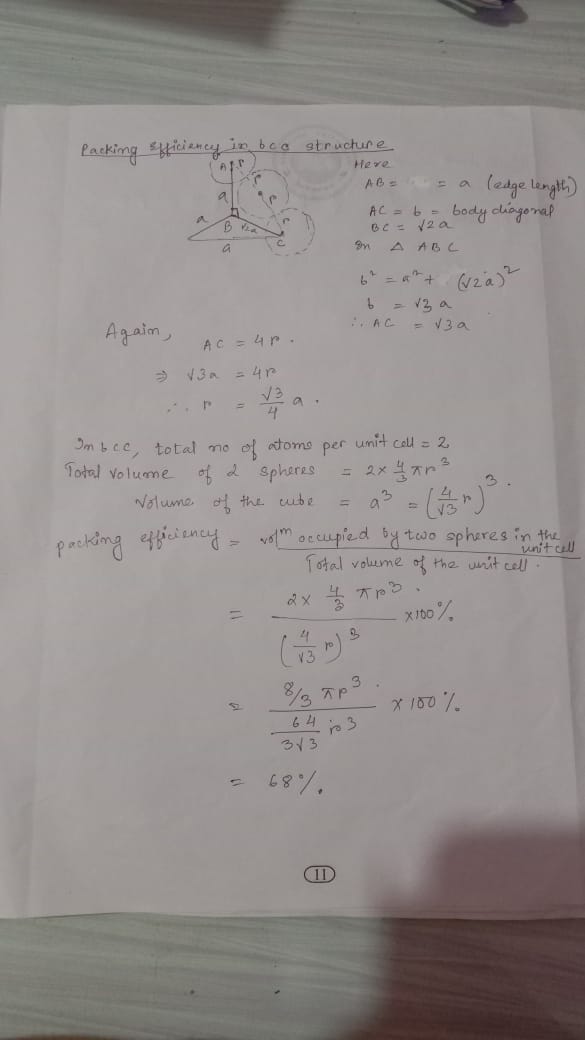 Packing Efficiency in bcc structure
Here
A r
r
a r
a r
B √2a C
a
AB = = a (edge length)
AC = b = body diagonal
BC = √2a
In Δ ABC
b² = a² + (√2a)²
b = √3 a
∴ AC = √3a
Again,
AC = 4r.
⇒ √3a = 4r
∴ r = √3/4 a.
In bcc, total no of atoms per unit cell = 2
Total volume of 2 spheres = 2× 4/3 πr³
Volume of the cube = a³ = (4/√3 r)³.
packing efficiency = volm occupied by two spheres in the unit cell
Total volume of the unit cell.
= 2× 4/3 πr³. / (4/√3 r)³ ×100%
= 8/3 πr³. / 64/3√3 r³ × 100 %
= 68%.
11